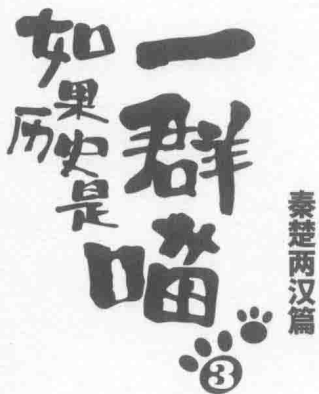 如果历史是
一群喵
③
秦楚两汉篇